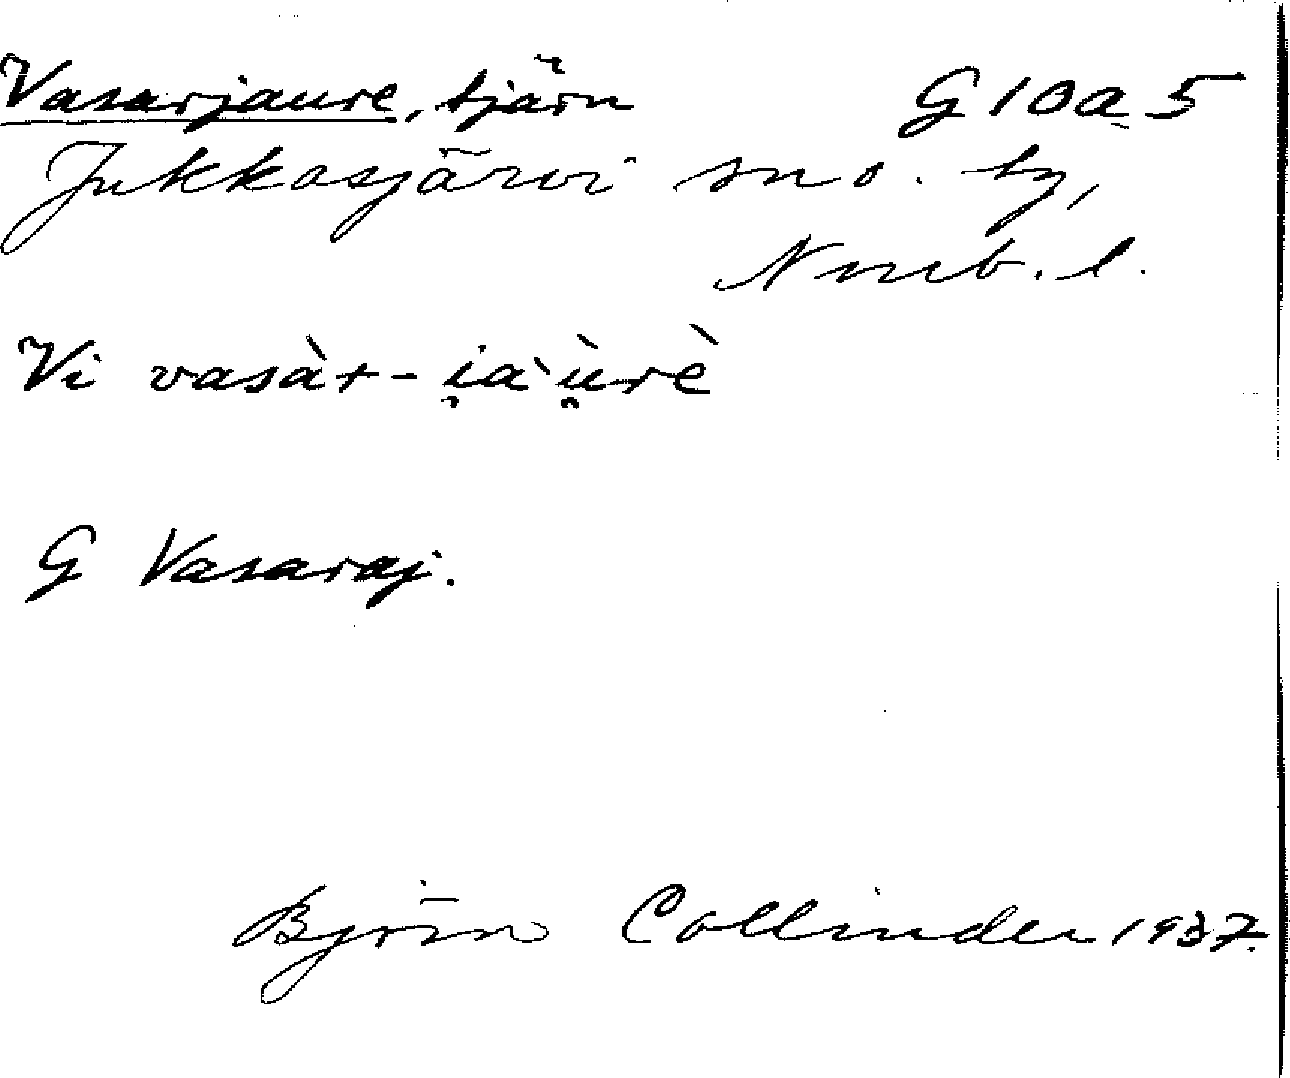 Vasarjaure, tjärn G 10 a 5
Jukkasjärvi sn o. tg,
Nmb. l.
Vi vasàr-i̯a`ù̯rè
G Vasaraj.
Björn Collinder 1937.